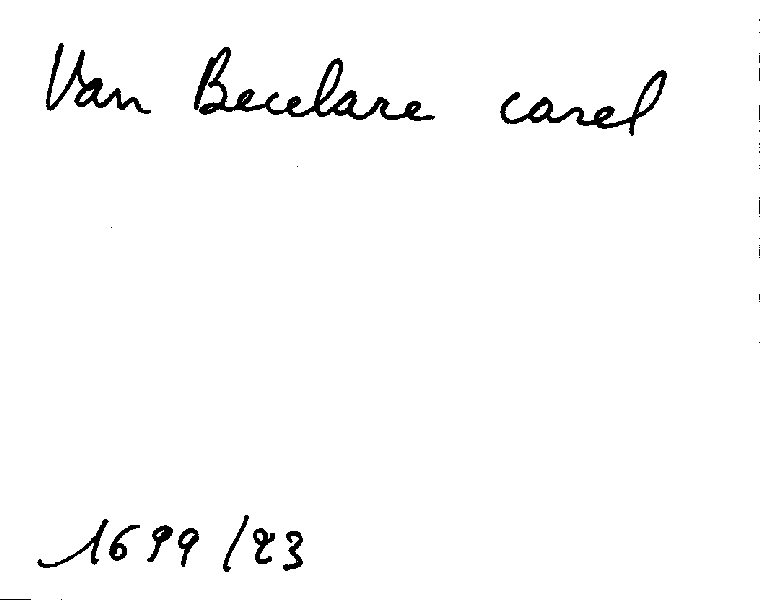 Van Becelare carel
1699/23